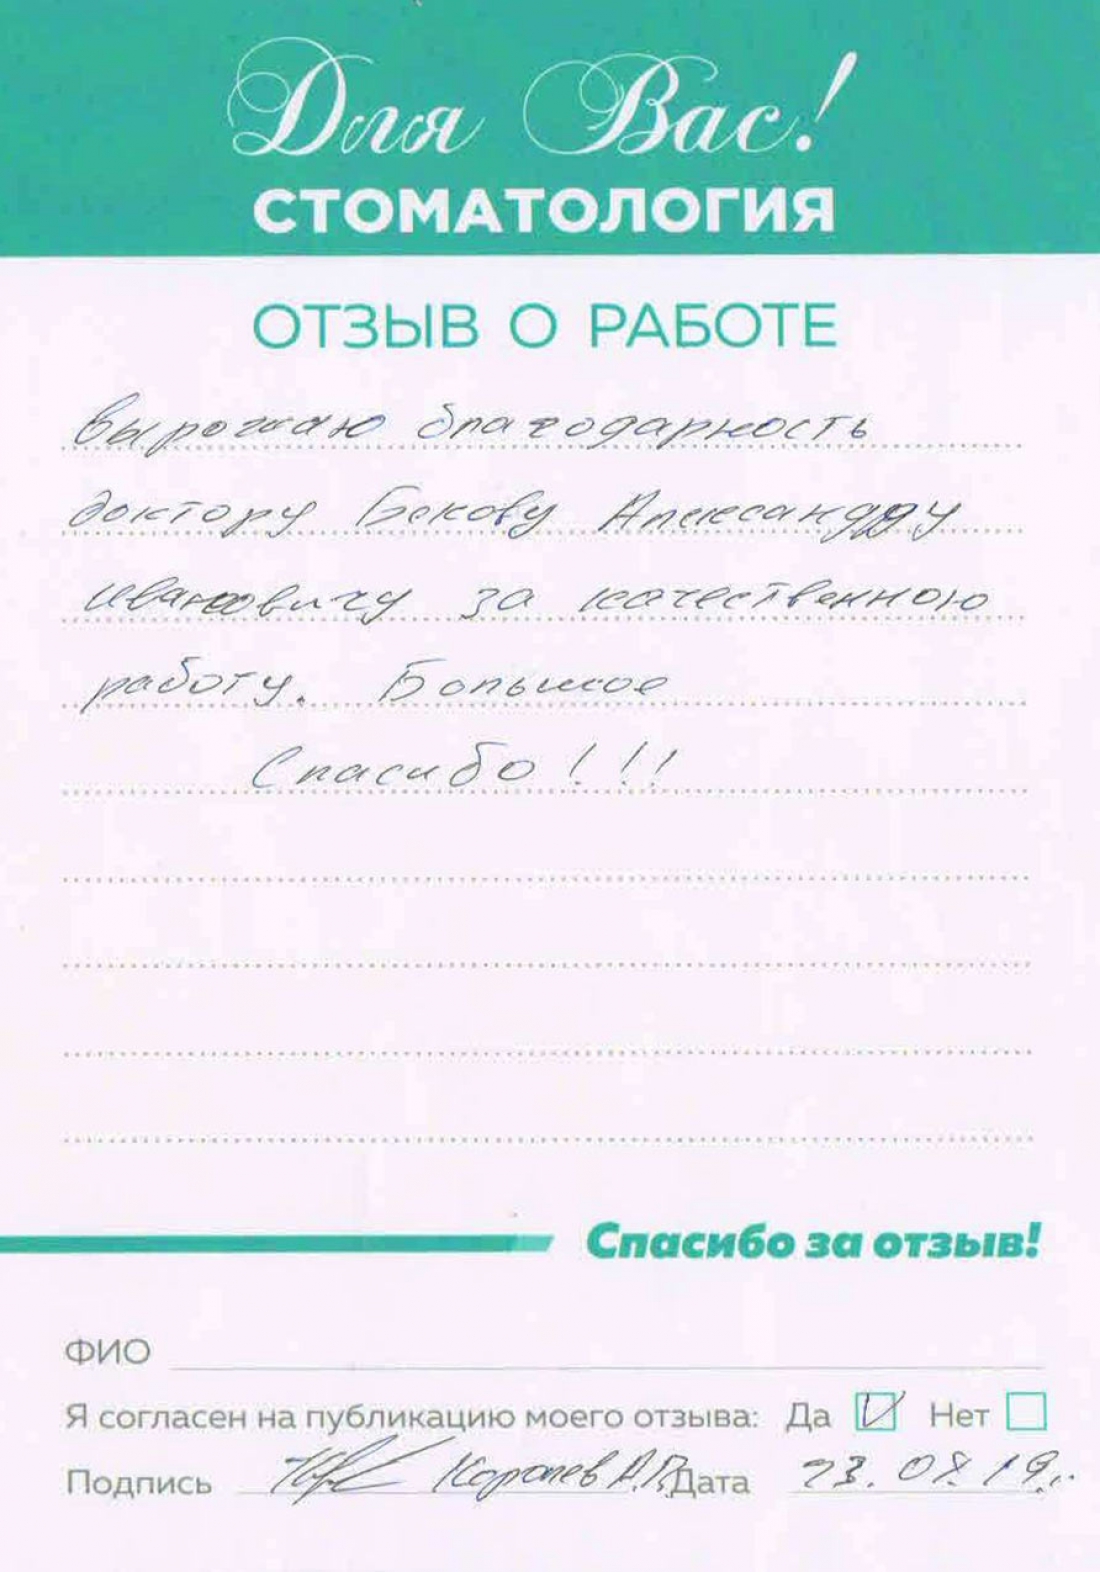 Для Вас!
СТОМАТОЛОГИЯ
ОТЗЫВ О РАБОТЕ
выражаю благодарность
доктору Бекову Александру
Ивановичу за качественною
работу. Большое
Спасибо!!!
Спасибо за отзыв!
ФИО
Я согласен на публикацию моего отзыва: Да Нет
Подпись Королев А.П. Дата 23.08.19.